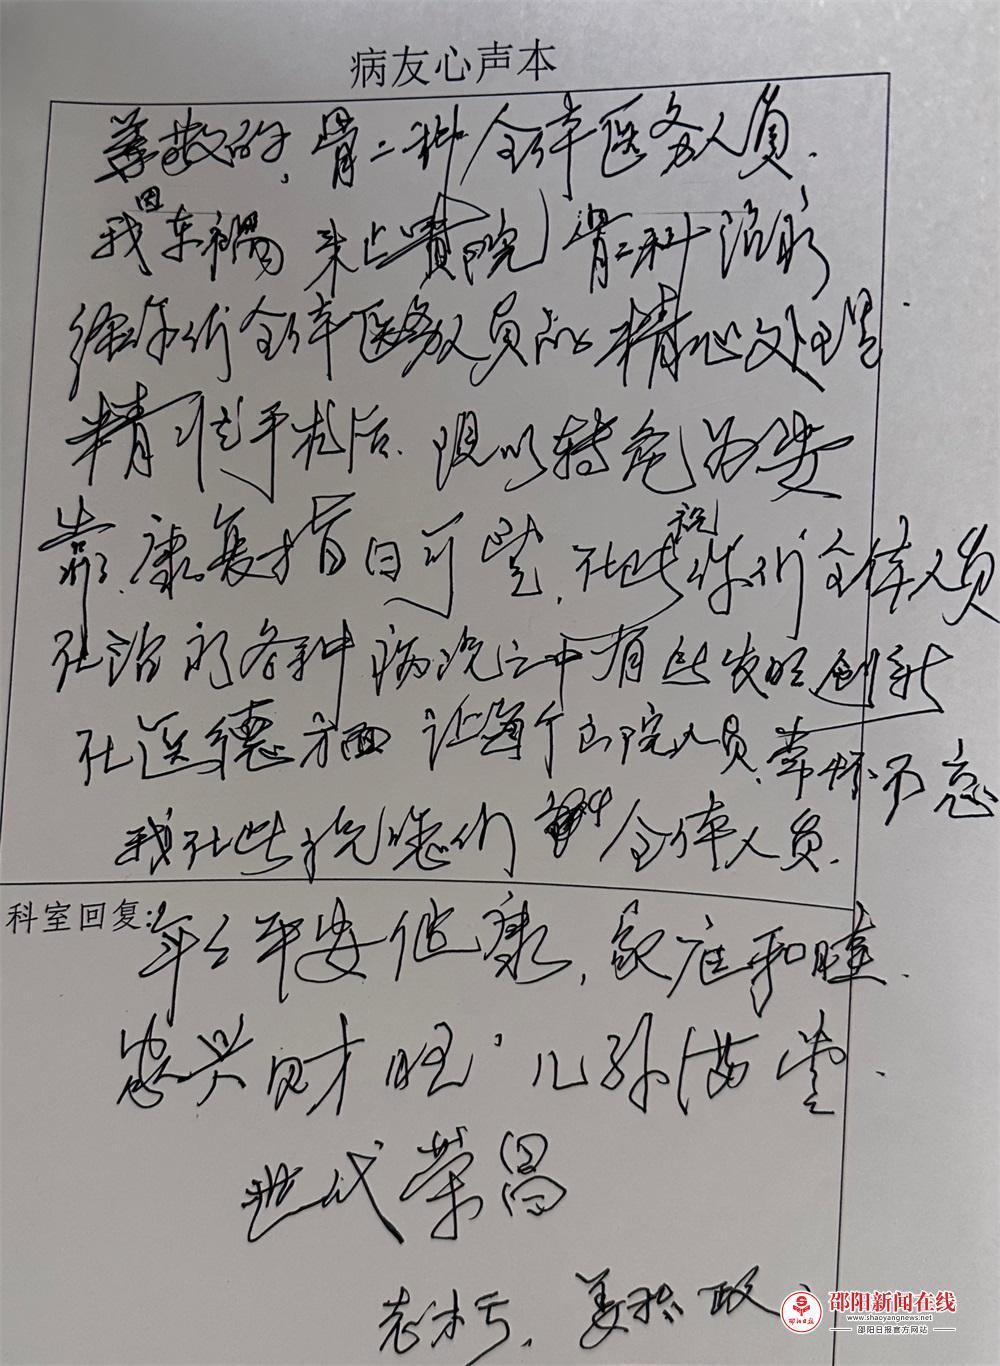 病友心声本
尊敬的,骨二科全体医务人员.
我因车祸来上贵院骨二科治疗
经你们全体医务人员的精心处理
精手术后.现以转危为安
康复指日可望,在此祝你们全体人员
在治疗各种病况之中有些发明创新
在医德方面让每个出院人员.常怀不忘
我在此祝您们全体人员.
科室回复:
年年平安健康,家庭和睦.
家兴财旺,儿孙满堂.
世代荣昌
姜政
邵阳新闻在线
www.shaoyangnews.net
邵阳日报官方网站
邵阳日报